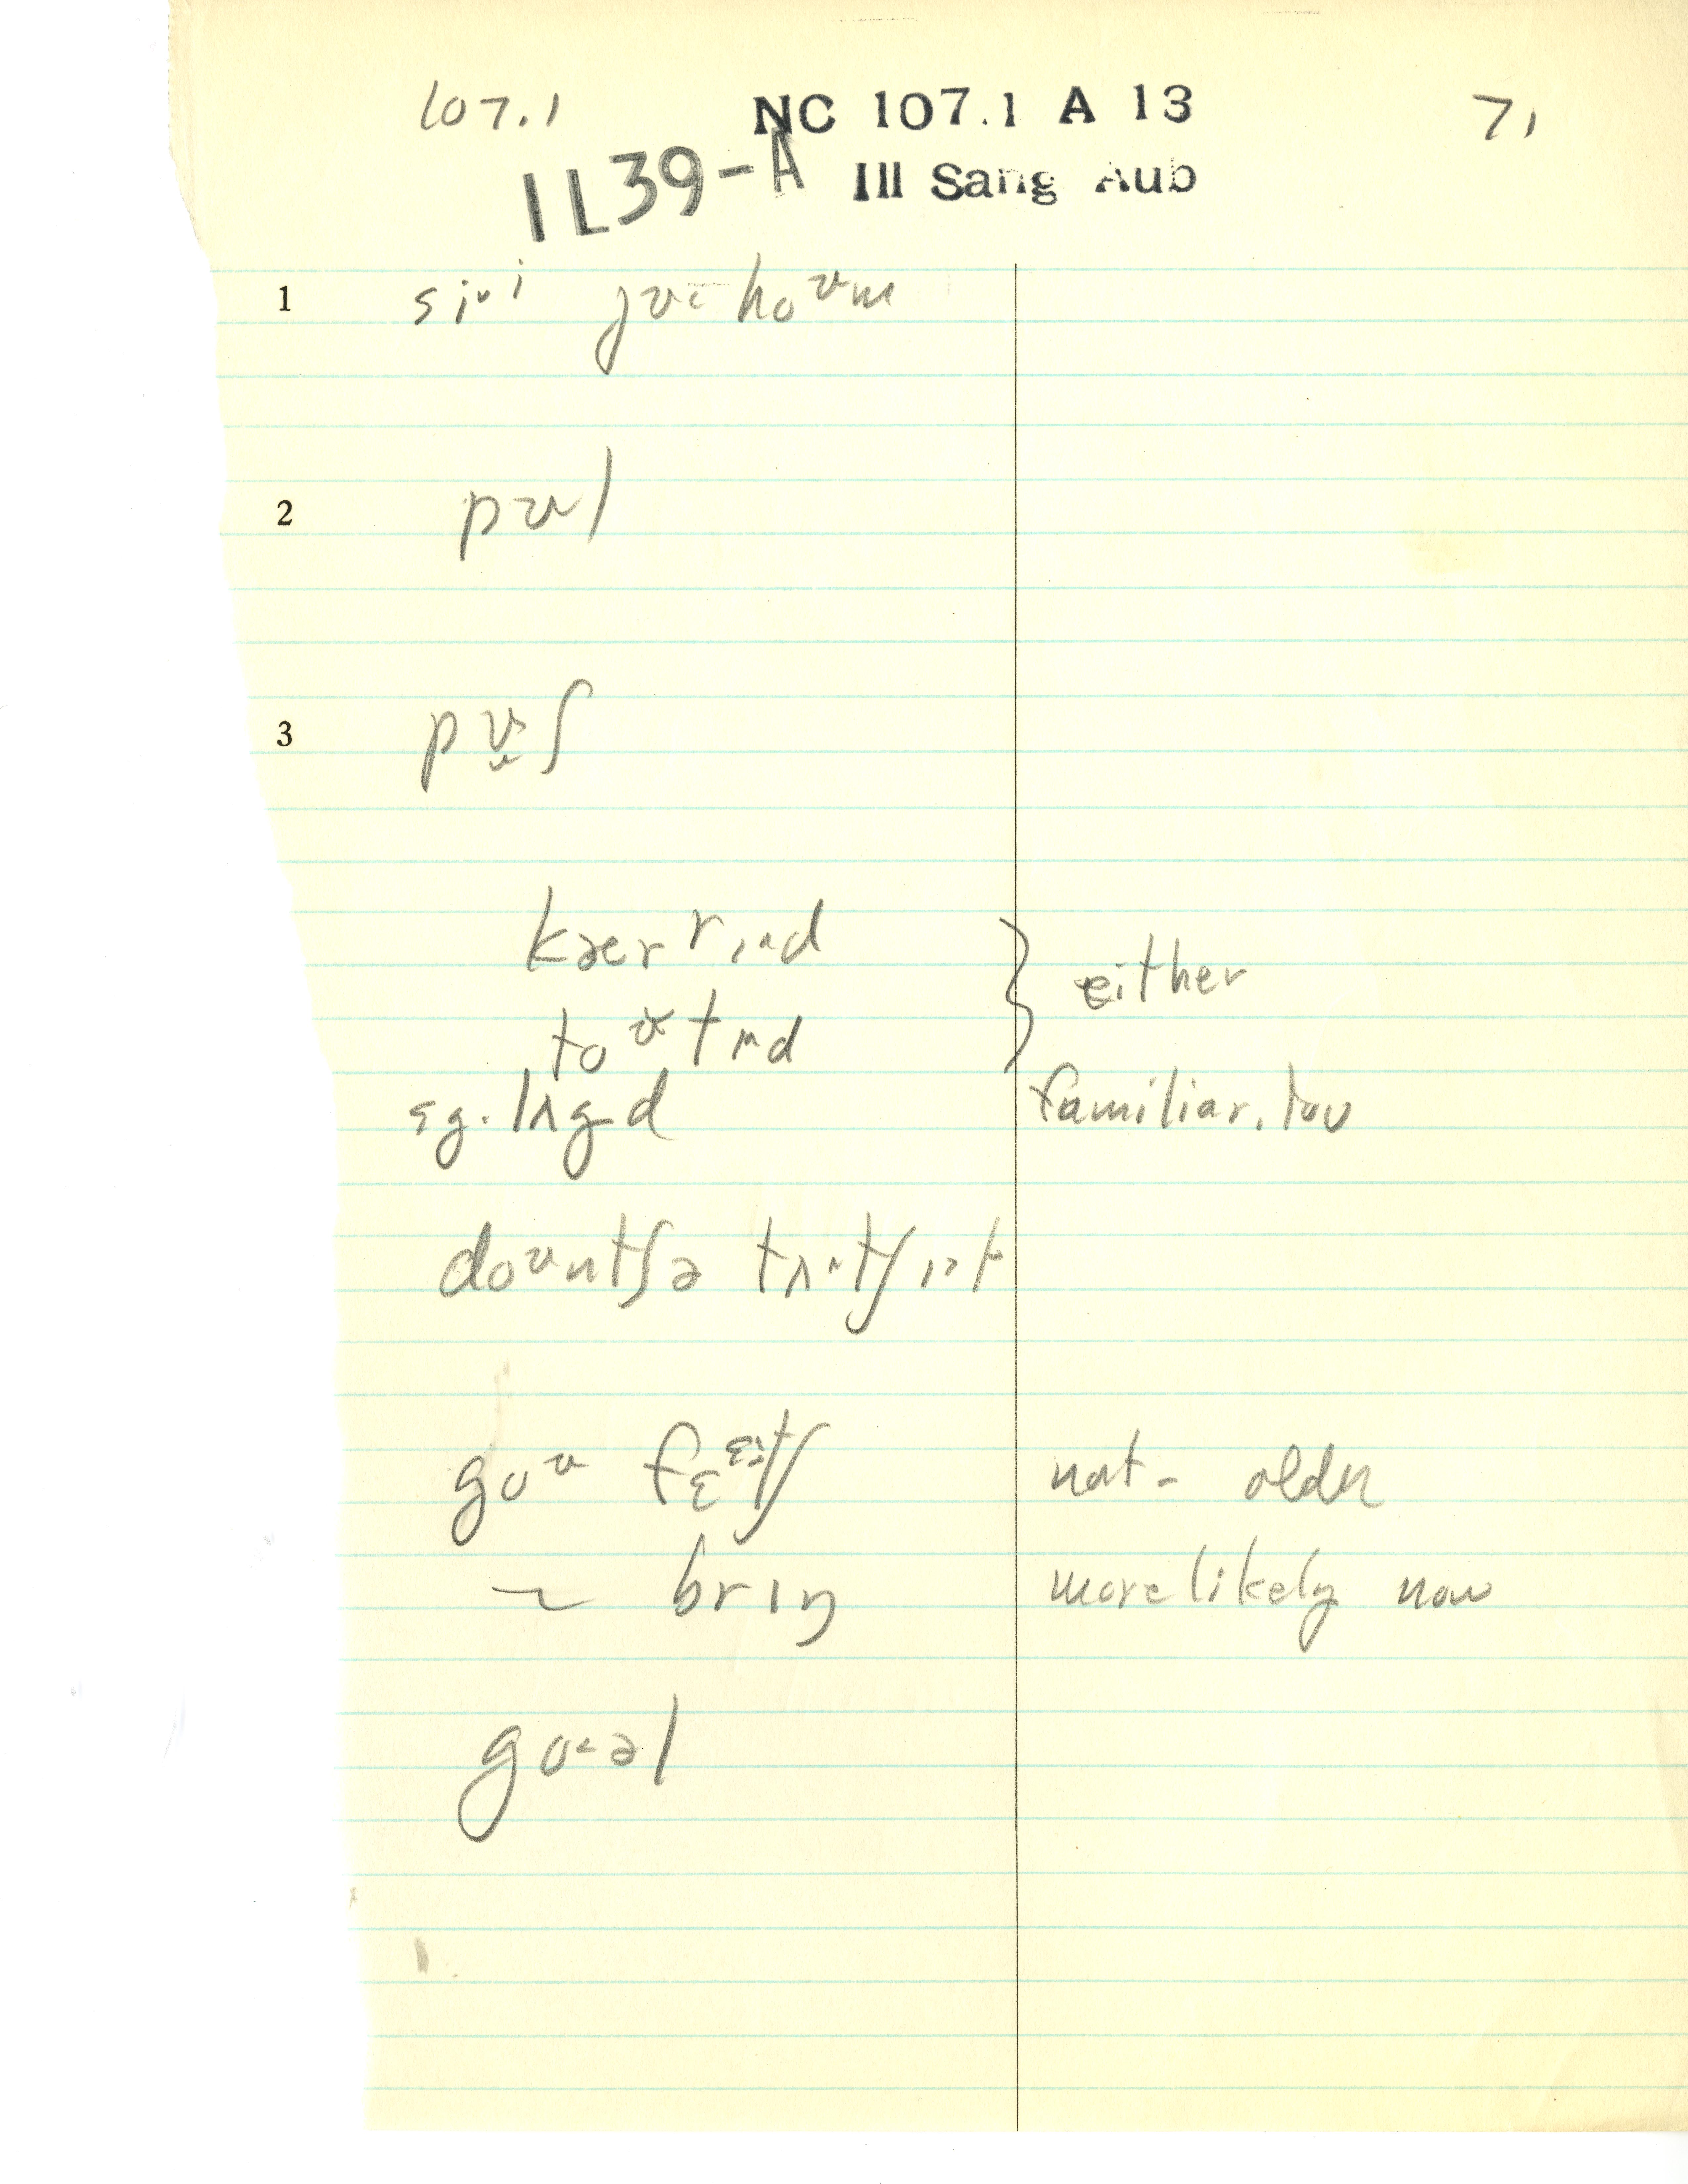 107.1 NC 107.1 A 13 71
IL39-A Ill Sang Aub
1 sɪᵛi jʊ˞ hoᶷm
2 pʊl
3 pʊ̬ʃ
kæɚrɪ˄d } either
toᶷtɪd
sg. lʌg-d familiar, too
doᶷntʃə tʌ˄tʃ ɪt
goᶷ fɛᵋtʃ nat - older
~ brɪŋ more likely now
goəl